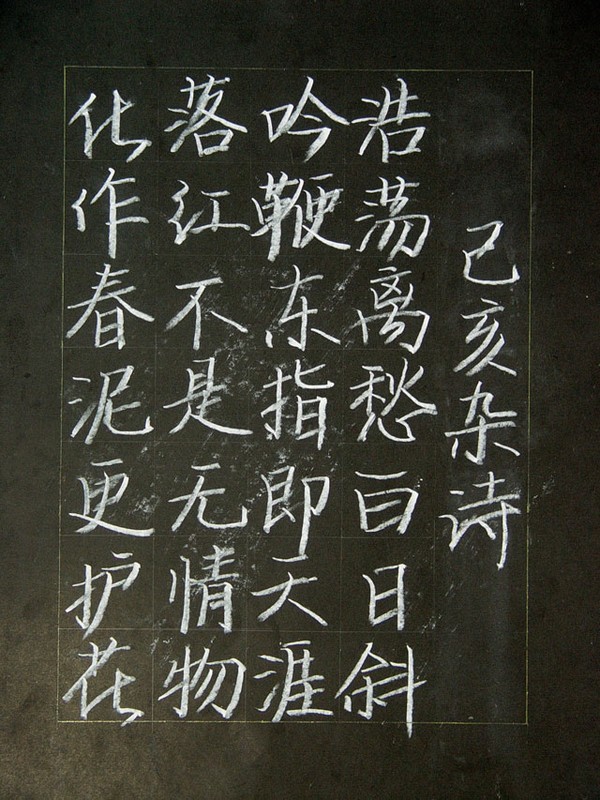 己亥杂诗
浩荡离愁白日斜
吟鞭东指即天涯
落红不是无情物
化作春泥更护花